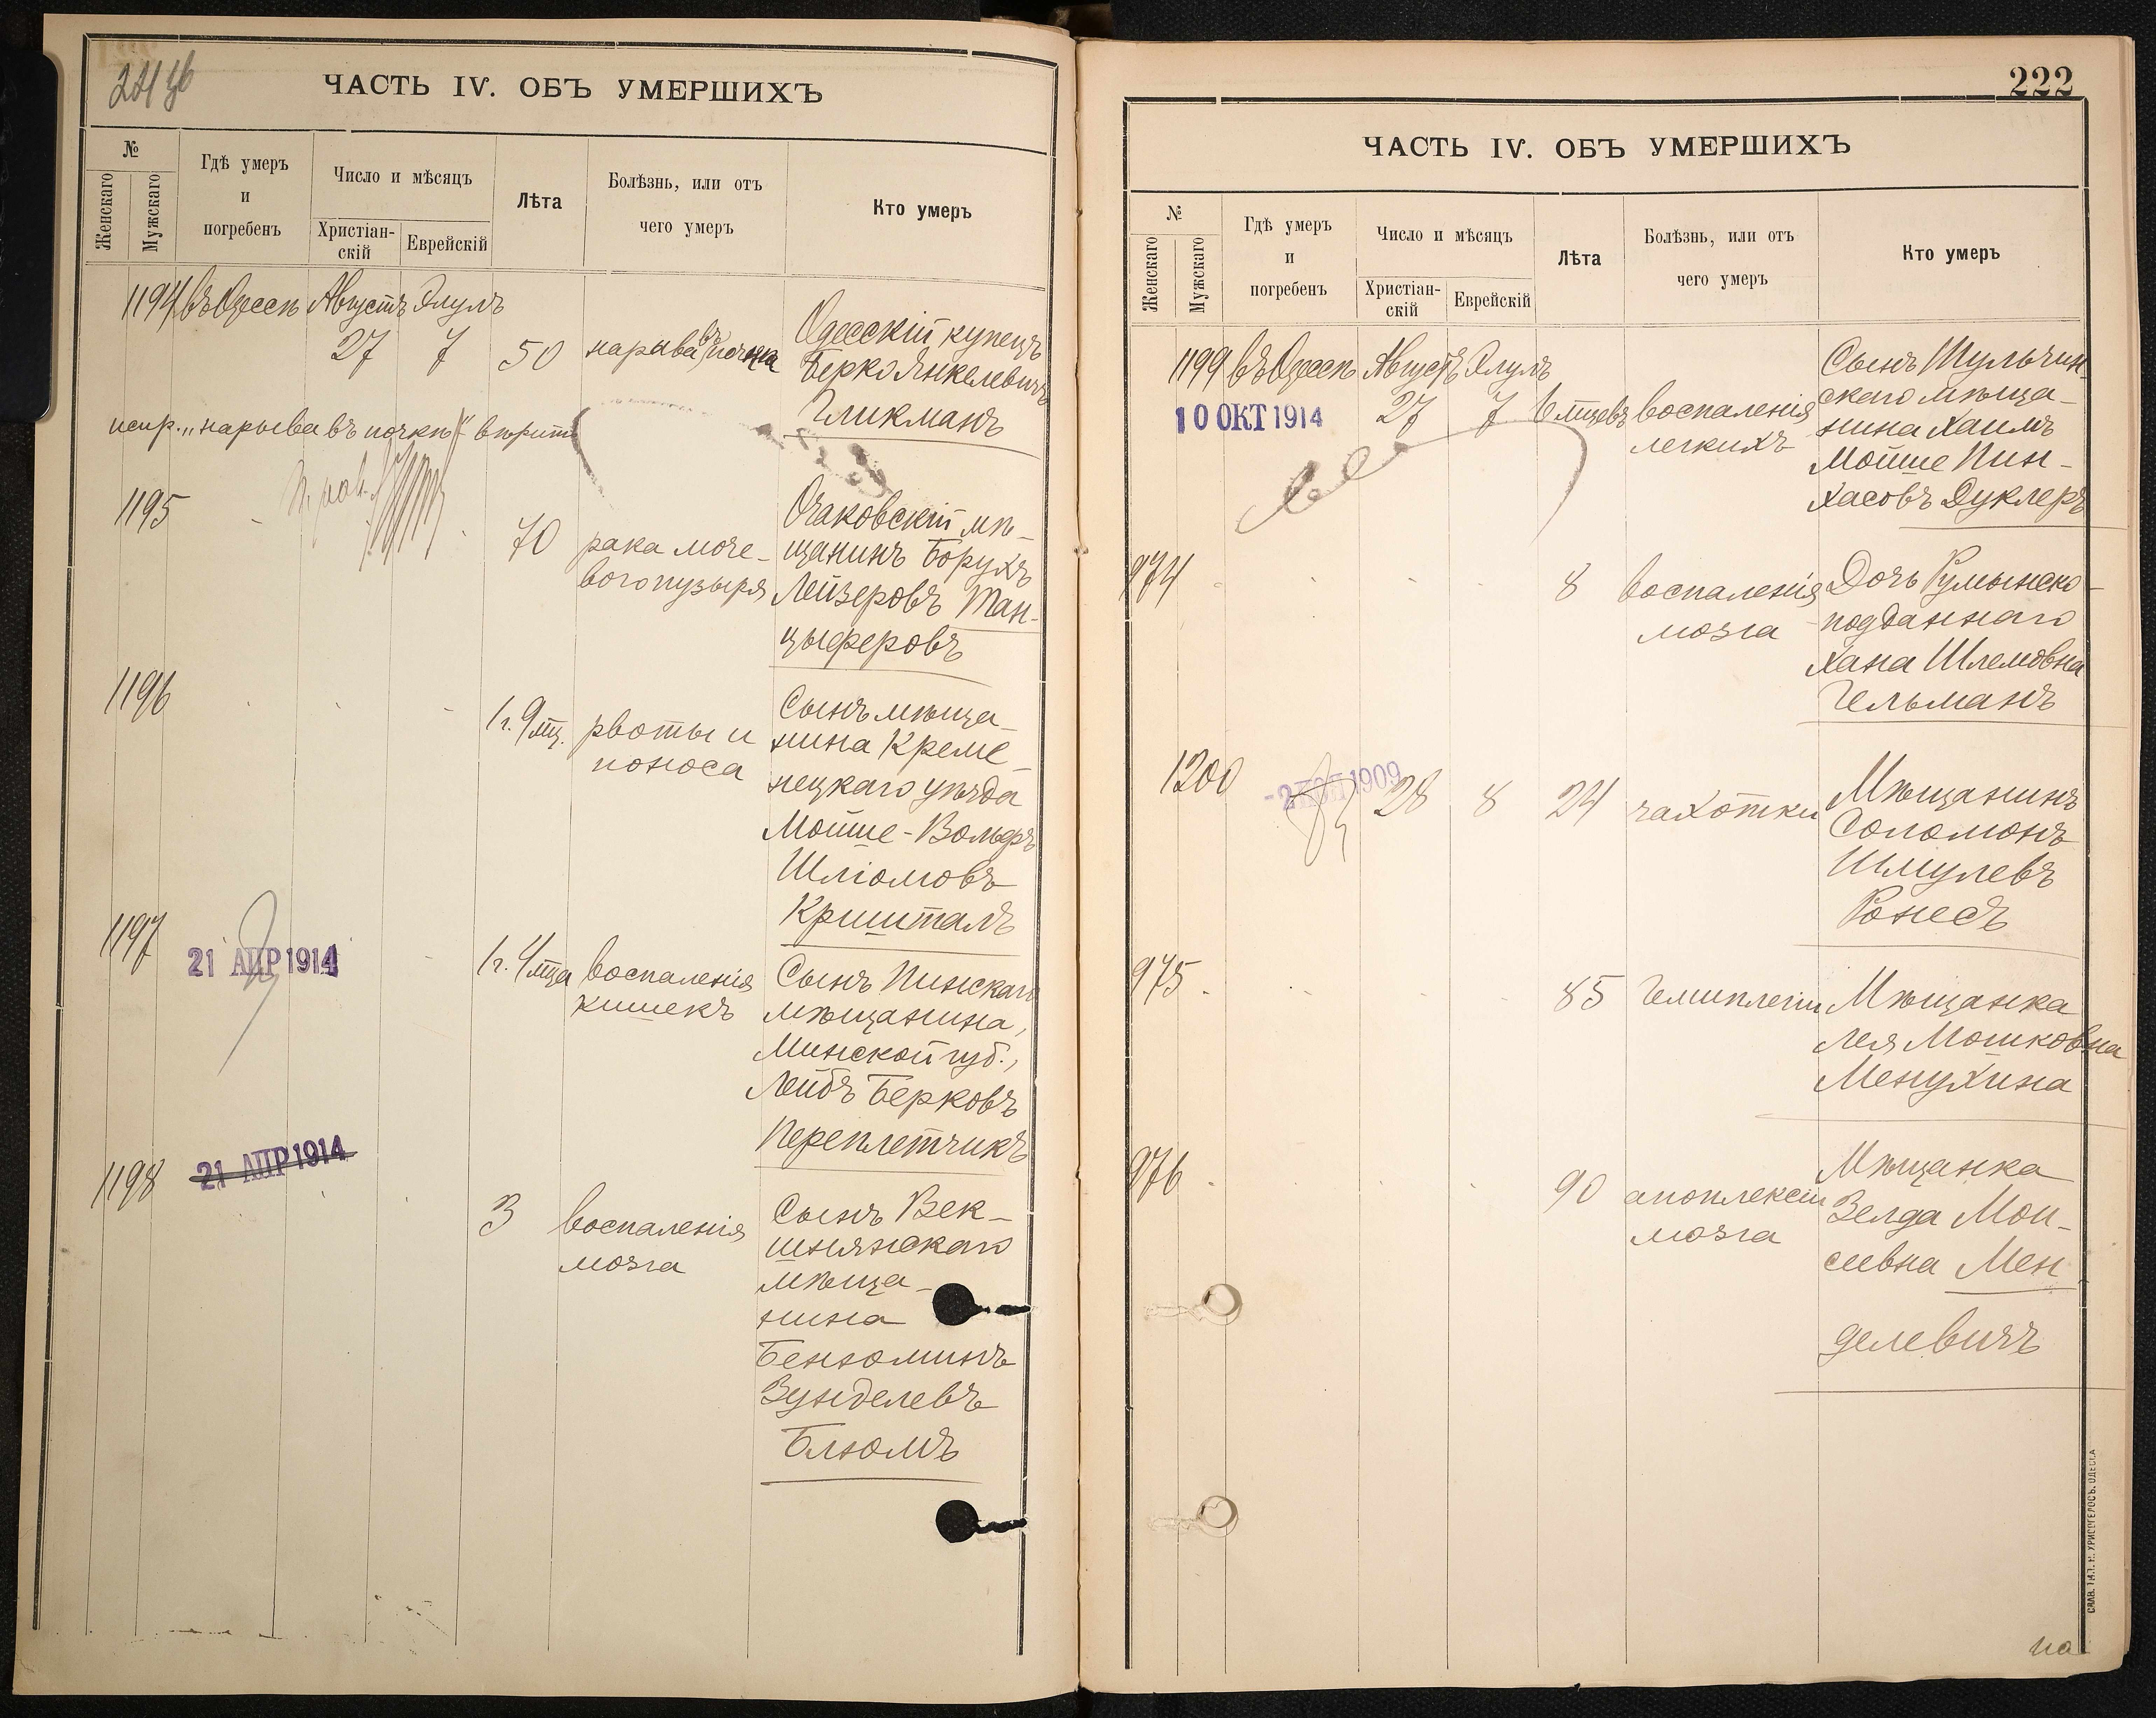 ЧАСТЬ IV. ОБЪ УМЕРШИХЪ
№
Женскаго
Мужскаго
Гдѣ умеръ
и
погребенъ
Число и мѣсяцъ
Христіан-
скій
Еврейскій
Лѣта
Болѣзнь, или отъ
чего умеръ
Кто умеръ
1194 въ Одессѣ Августъ Элулъ
27 7 50 нарыва въ почка
Одесскій купецъ
Берко Янкелевичъ
Гликманъ
испр. „нарыва въ почкѣ“ вѣрить
1195
70 рака моче-
вого пузыря
Очаковскій мѣ-
щанинъ Борухъ
Лейзеровъ Тан-
цыферовъ
1196
1 г. 9 мц. рвоты и
поноса
Сынъ мѣща-
нина Креме-
нецкаго уѣзда
Мойше-Вольфъ
Шліомовъ
Кришталъ
1197
21 АПР 1914
1 г. 4 мца воспаленія
кишекъ
Сынъ Пинскаго
мѣщанина,
Минской губ.,
Лейбъ Берковъ
Переплетчикъ
1198
21 АПР 1914
3 воспаленія
мозга
Сынъ Век-
шнянскаго
мѣща-
нина
Бенюминъ
Зунделевъ
Блюмъ
222
ЧАСТЬ IV. ОБЪ УМЕРШИХЪ
№
Женскаго
Мужскаго
Гдѣ умеръ
и
погребенъ
Число и мѣсяцъ
Христіан-
скій
Еврейскій
Лѣта
Болѣзнь, или отъ
чего умеръ
Кто умеръ
1199 въ Одессѣ Августъ Элулъ
10 ОКТ 1914
27 7 6 мцевъ воспаленія
легкихъ
Сынъ Тульчин-
скаго мѣща-
нина Хаимъ
Мойше Пин-
хасовъ Дуклеръ
974
8 воспаленія
мозга
Дочь Румынско-
подданнаго
Хана Шлемовна
Гельманъ
1200
1909
28 8 24 чахотки
Мѣщанинъ
Соломонъ
Шмулевъ
Ронесъ
975
85 Гемиплегіи
Мѣщанка
Лея Мошковна
Менухина
976
90 апоплексіи
мозга
Мѣщанка
Зелда Мои-
сеевна Мен
делевичъ
СЛАВ. ТИП. Н. ХРИСОГЕЛОСЪ. ОДЕССА